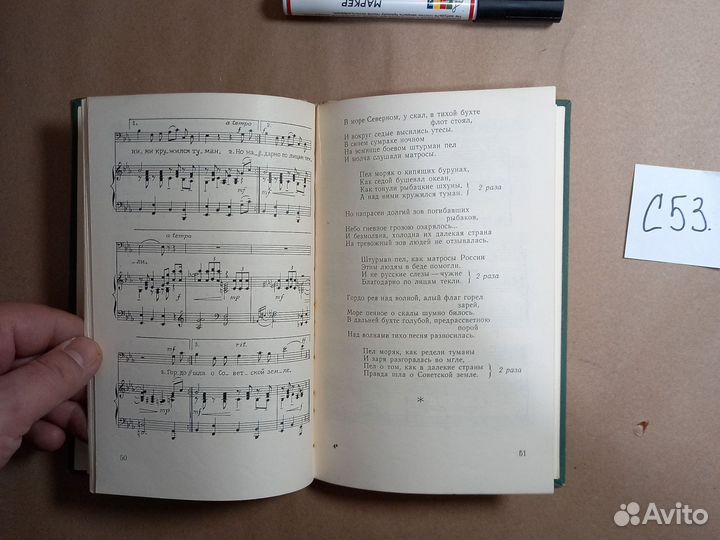 МАРКЕР
1.
a tempo
2.
ни, ми кру_жился ту_ман, 2. Но на_ дарно по лицам тек_
mf
a tempo
_ли.
f
mp
mf
3.
rit.
ff
3. Гордо шла о Со_вет_ской зем_ле.
mf
mp
50
В море Северном, у скал, в тихой бухте
флот стоял,
И вокруг седые высились утесы.
В синем сумраке ночном
На эсминце боевом штурман пел
И молча слушали матросы.
Пел моряк о кипящих бурунах,
Как седой бушевал океан,
Как тонули рыбацкие шхуны,
А над ними кружился туман.
2 раза
Но напрасен долгий зов погибавших
рыбаков,
Небо гневное грозою озарялось...
И безмолвна, холодна их далекая страна
На тревожный зов людей не отзывалась.
Штурман пел, как матросы России
Этим людям в беде помогли.
И не русские слезы — чужие
Благодарно по лицам текли.
2 раза
Гордо рея над волной, алый флаг горел
зарей,
Море пенное о скалы шумно билось.
В дальней бухте голубой, предрассветною
порой
Над волнами тихо песня разносилась.
Пел моряк, как редели туманы
И заря разгоралась во мгле,
Пел о том, как в далекие страны
Правда шла о Советской земле.
2 раза
*
51
С53.
Avito